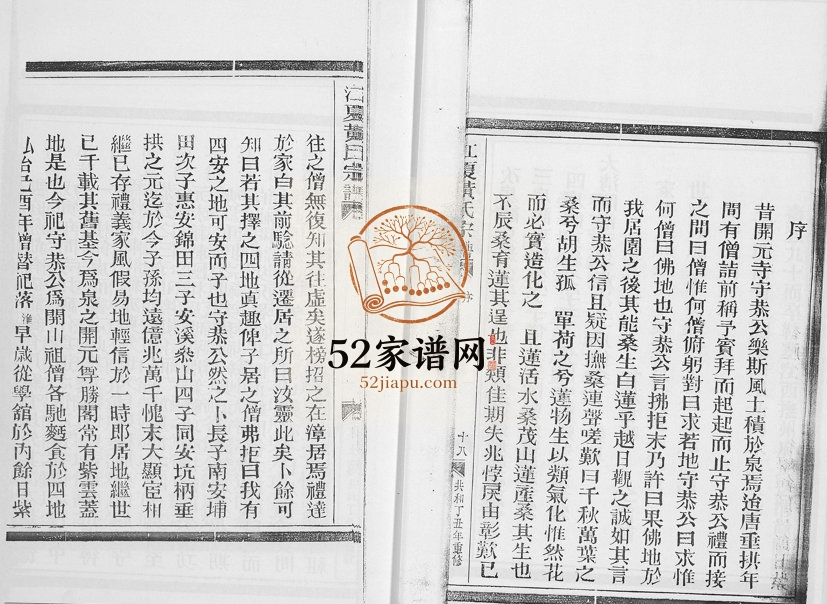 序
昔開元寺守恭公樂斯風土積於泉焉迨唐垂拱年
間有僧詰前稱予賓拜而起起而止守恭公禮而接
之問曰僧惟何僧俯躬對曰求若地守恭公曰求惟
何僧曰佛地也守恭公言拂拒末乃許曰果佛地於
我居園之後其能桑生白蓮乎越日觀之誠如其言
而守恭公信且疑因撫桑連聲嗟歎曰千秋萬葉之
桑兮胡生孤 單荷之兮蓮物生以類氣化惟然花
而必實造化之 且蓮活水桑茂山蓮產桑其生也
不辰桑育蓮其逞也非類佳期失兆悖戾由彰歎已
江夏黃氏宗譜
十八
共和丁丑年重修
江夏黃氏宗譜
往之僧無復知其往虛矣遂榜招之在漳居焉禮達
於家白其前驗請從遷居之所曰汝靈此矣卜餘可
知曰若其擇之四地真趣俾子居之僧弗拒曰我有
四安之地可安而子也守恭公然之卜長子南安埔
田次子惠安錦田三子安溪叅山四子同安坑柄垂
拱之元迄於今子孫均遠億兆萬千愧末大顯宦相
繼已存禮義家風假易地輕信於一時即居地繼世
已千載其舊基今爲泉之開元尊勝閣常有紫雲蓋
地是也今祀守恭公爲開山祖僧各馳麵食於四地
弘治己酉年僧替祀落 早歲從學舘於內餘日紫
52家谱网
52jiapu.com